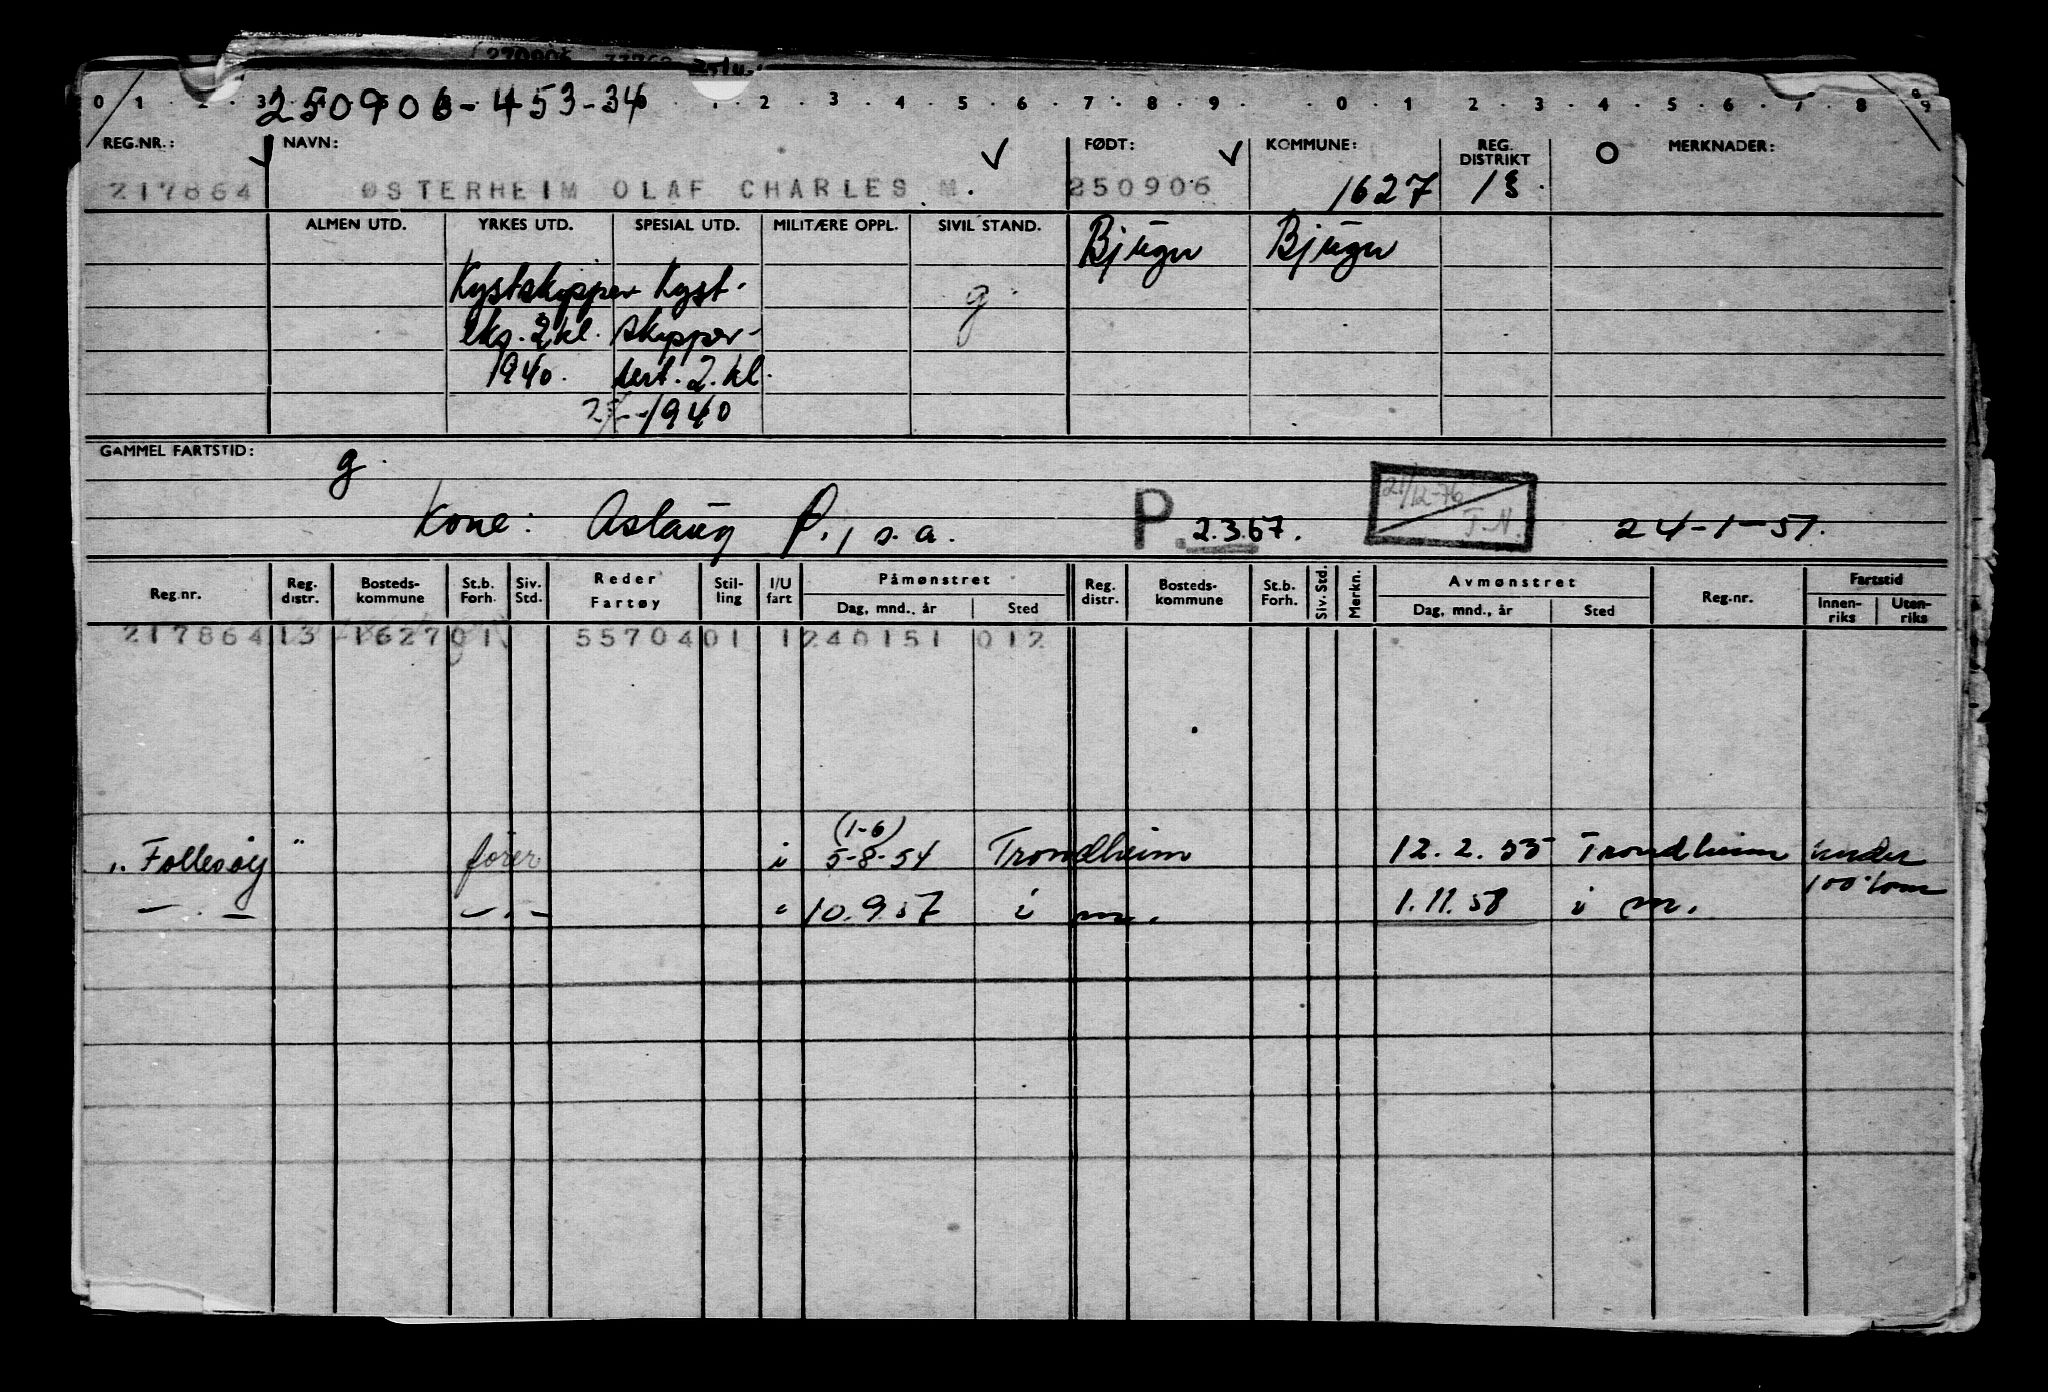 270906
0 1 2 3 2 3 4 5 6 7 8 9 0 1 2 3 4 5 6 7 8 9
250906-453-34
REG.NR.: NAVN: FØDT: KOMMUNE: REG. DISTRIKT MERKNADER:
217864 ØSTERHEIM OLAF CHARLES M. 250906 1627 13
ALMEN UTD. YRKES UTD. SPESIAL UTD. MILITÆRE OPPL. SIVIL STAND. Bjugn Bjugn
Kystskipper Kyst- g.
eks. 2 kl. skipper-
1940. sert. 2. kl.
1940
GAMMEL FARTSTID: g.
Kone: Aslaug P., s.a. P. 2.3.67. 21/12-76 T.N. 24-1-51.
Reg.nr. Reg. distr. Bosteds- kommune St.b. Forh. Siv. Std. Reder Fartøy Stil- ling I/U fart Påmønstret Dag, mnd., år Sted Reg. distr. Bosteds- kommune St.b. Forh. Siv. Std. Merkn. Avmønstret Dag, mnd., år Sted Reg.nr. Fartstid Innen- riks Uten- riks
217864 13 1627 01 55704 01 1 240151 012
(1-6)
"Follesøy" fører i 5-8-54 Trondheim 12.2.55 Trondheim under
100 tonn
— . — — . — " 10.9.57 i m. 1.11.58 i m.